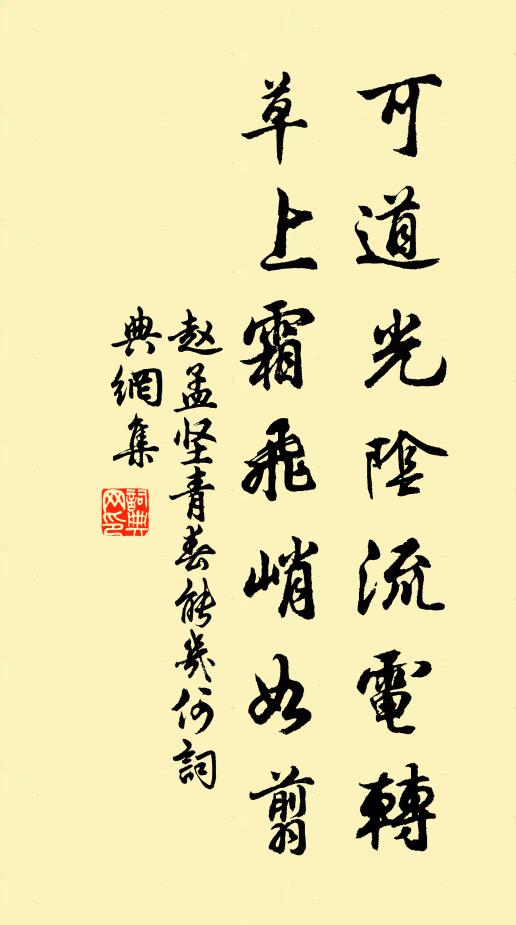 可道光陰流電轉
草上霜飛峭如翦
赵孟坚青春能几何詞
典網集
詞典
网印